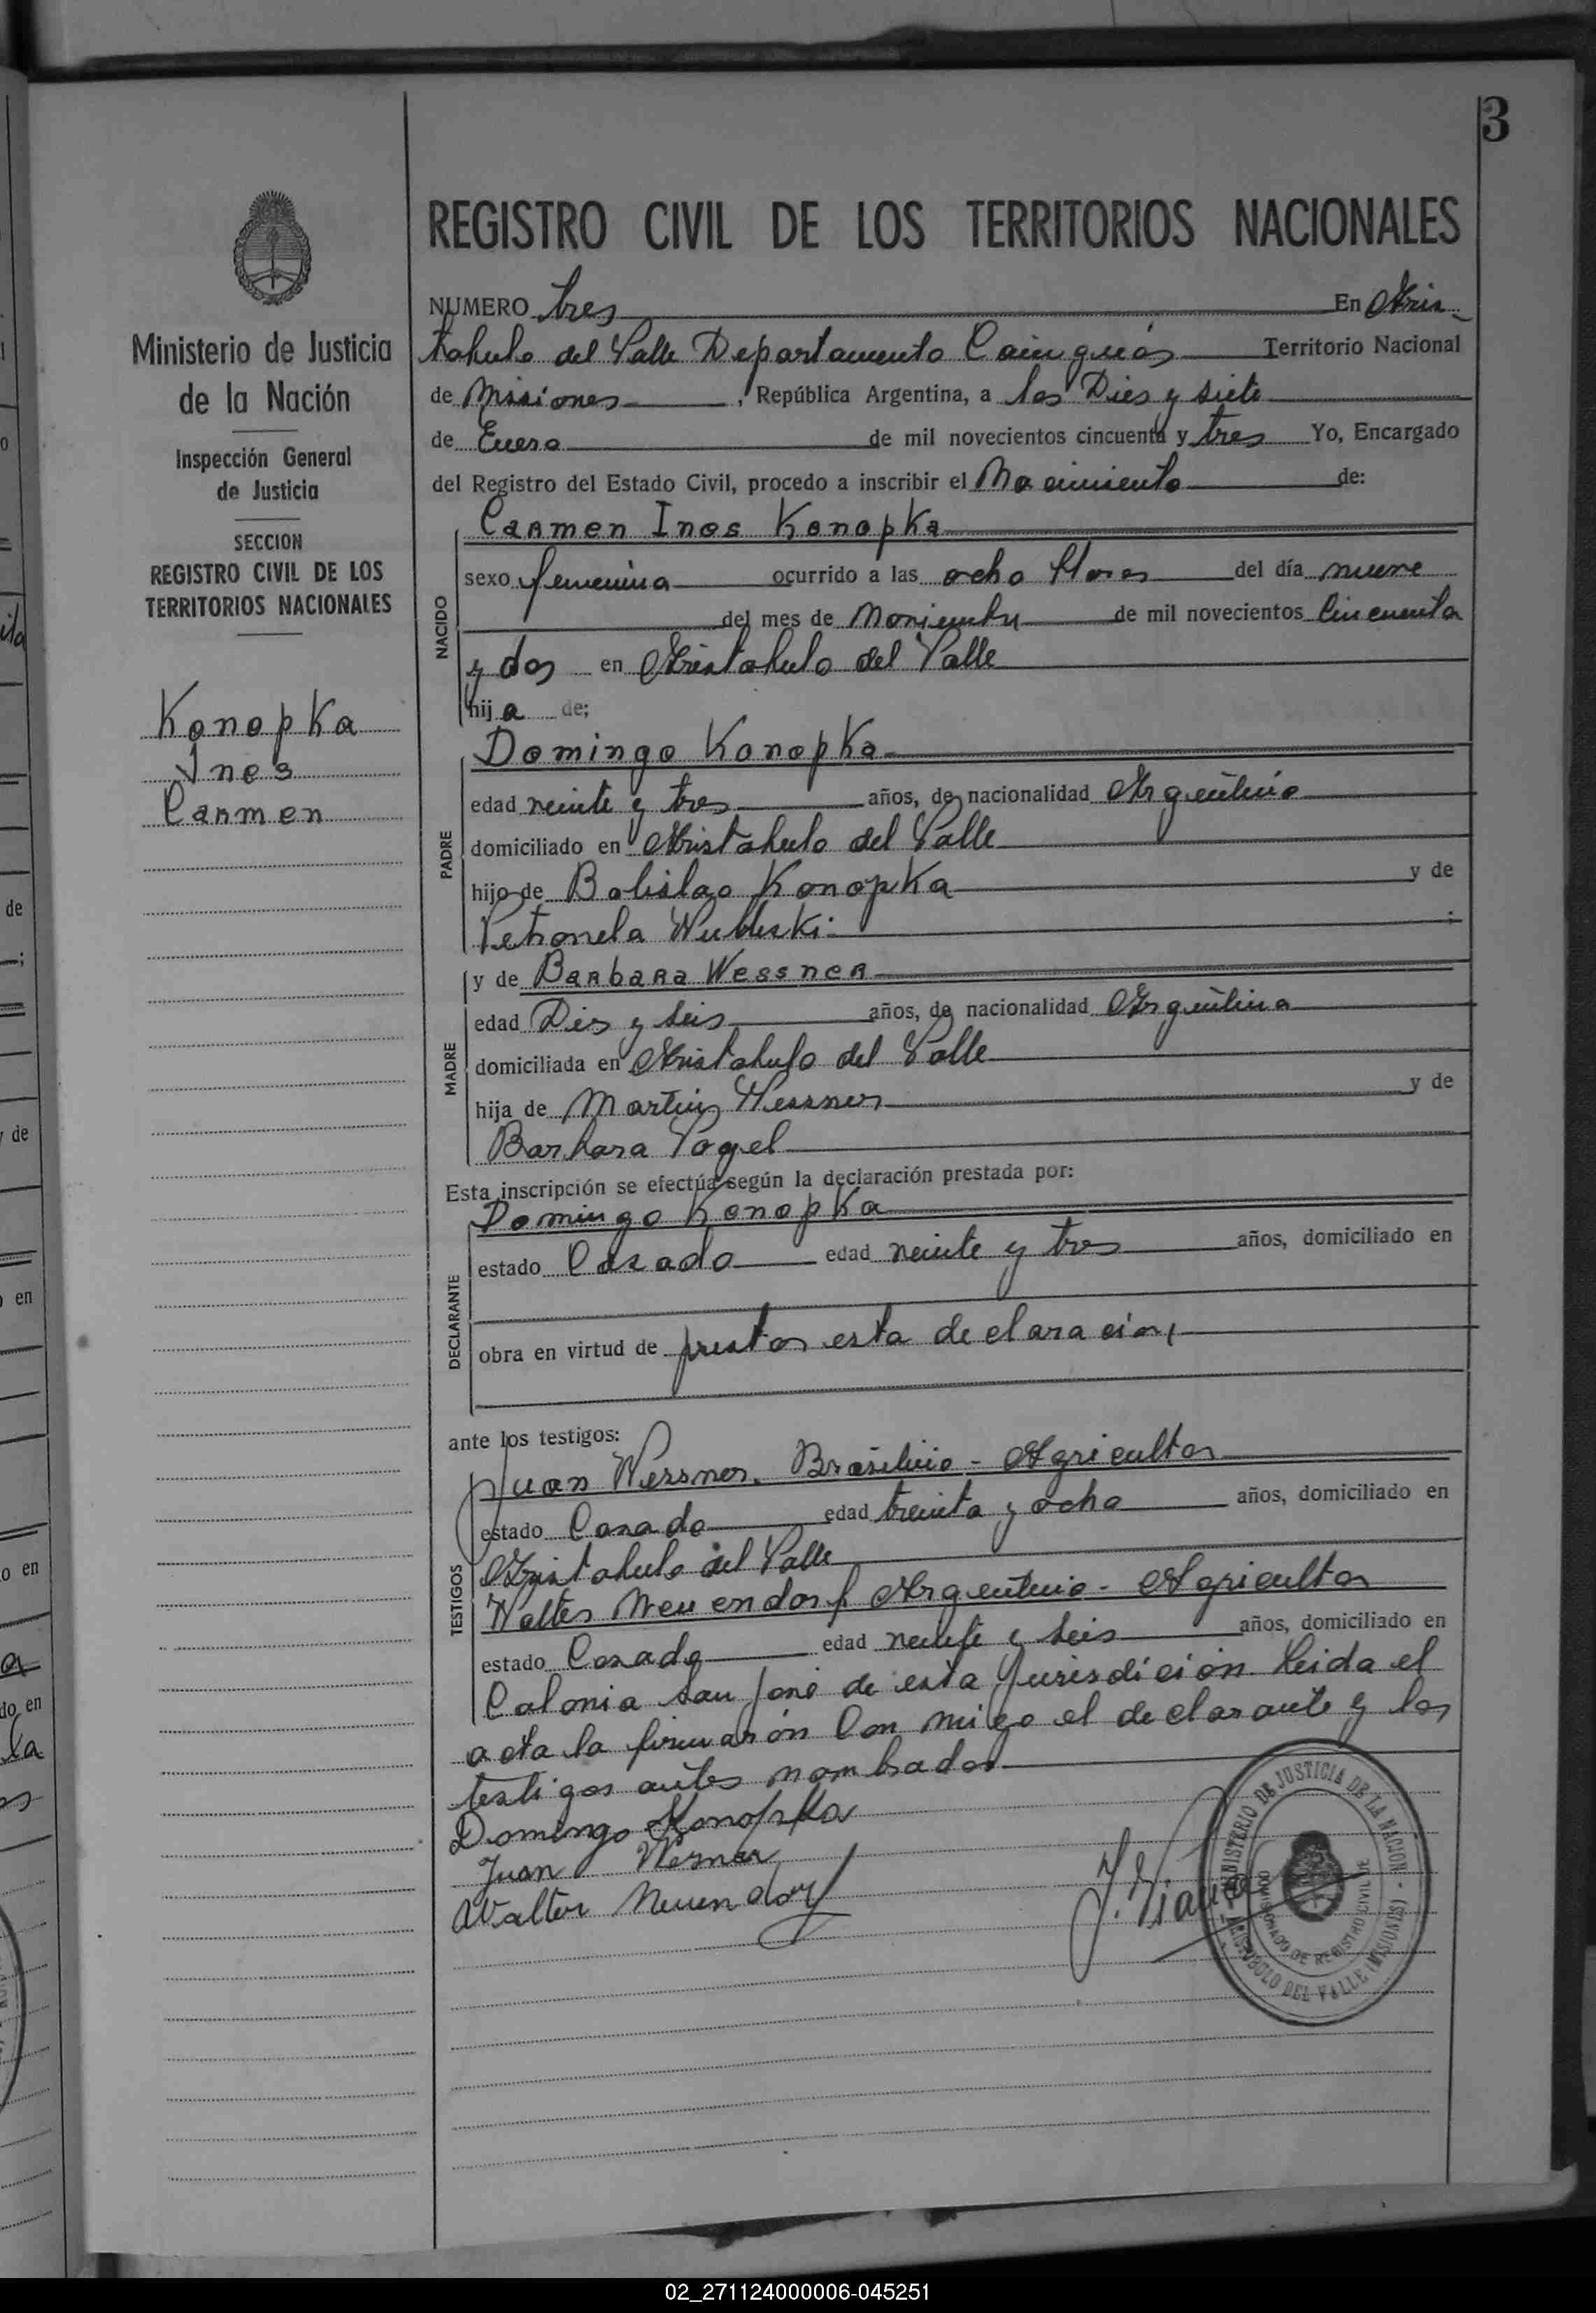 3
REGISTRO CIVIL DE LOS TERRITORIOS NACIONALES
Ministerio de Justicia
de la Nación
Inspección General
de Justicia
SECCION
REGISTRO CIVIL DE LOS
TERRITORIOS NACIONALES
Konopka
Ines
Carmen
NUMERO tres En Aris-
tobulo del Valle Departamento Cainguás Territorio Nacional
de Misiones, República Argentina, a los Dies y siete
de Enero de mil novecientos cincuenta y tres Yo, Encargado
del Registro del Estado Civil, procedo a inscribir el Nacimiento de:
NACIDO
Carmen Ines Konopka
sexo femenina ocurrido a las ocho Horas del día nueve
del mes de Noviembre de mil novecientos Cincuenta
y dos en Aristobulo del Valle
hija de;
PADRE
Domingo Konopka
edad veinte y tres años, de nacionalidad Argentino
domiciliado en Aristobulo del Valle
hijo de Bolislao Konopka y de
Petronela ;
MADRE
y de Barbara Wessner
edad Dies y seis años, de nacionalidad Argentina
domiciliada en Aristobulo del Valle
hija de Martin Wessner y de
Barbara Vogel
Esta inscripción se efectúa según la declaración prestada por:
DECLARANTE
Domingo Konopka
estado Casado edad veinte y tres años, domiciliado en
obra en virtud de prestar esta declaración,
ante los testigos:
TESTIGOS
Juan Wessner, Brasilino - Agricultor
estado Casado edad treinta y ocho años, domiciliado en
Aristobulo del Valle
Walter Neuendorf Argentino - Agricultor
estado Casado edad veinte y seis años, domiciliado en
Colonia San José de esta Jurisdicion leida el
acta la firmarón Con migo el declarante y los
testigos antes nombrados
Domingo Konopka
Juan Wesner
Walter Neuendorf
MINISTERIO DE JUSTICIA DE LA NACION - ARISTOBULO DEL VALLE (MISIONES)
DE REGISTRO CIVIL DE
de
;
de
en
o en
do en
la
02_271124000006-045251